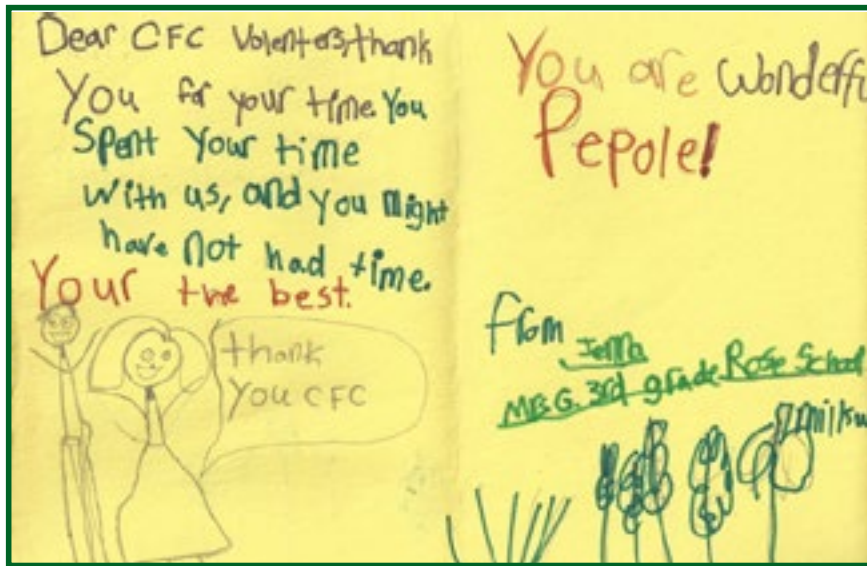 Dear CFC Volenters, thank
You for your time. You
Spent Your time
with us, and you Might
have not had time.
Your the best.
thank
You CFC
You are Wonderfu
Pepole!
from
Jenna
Mrs G. 3rd grade Rose School
milkw